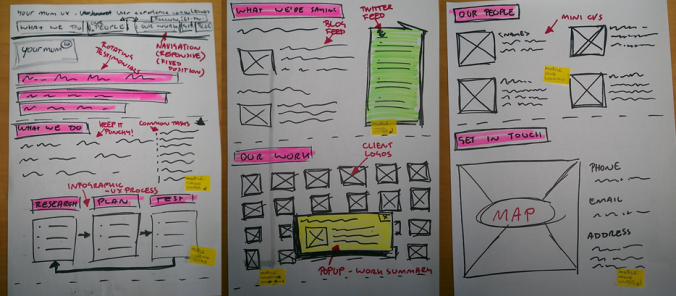 YOUR MUM UX -
WHAT WE DO
PEOPLE
OUR WORK
your mum
ROTATING
TESTIMONIALS
NAVIGATION
(RESPONSIVE)
(FIXED
POSITION)
WHAT WE DO
KEEP IT
PUNCHY!
COMMON TASKS
INFOGRAPHIC
- UX PROCESS
RESEARCH
PLAN
TEST
WHAT WE'RE SAYING
BLOG
FEED
TWITTER
FEED
OUR WORK
CLIENT
LOGOS
POPUP - WORK SUMMARY
OUR PEOPLE
MINI CVS
GET IN TOUCH
MAP
PHONE
EMAIL
ADDRESS